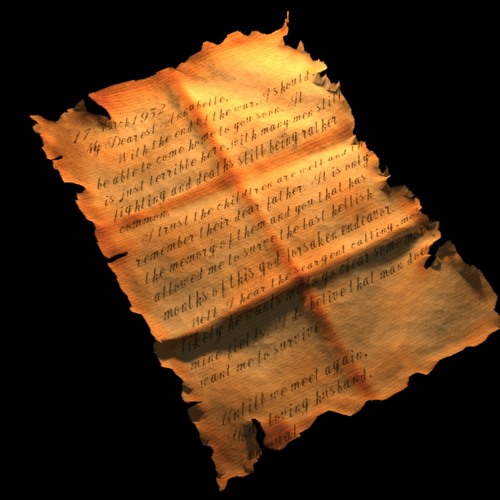 17 March 1932
My Dearest Annabelle.
With the end of the war. I should
be able to come home to you soon. It
is just terrible here, with many men still
fighting and deaths still being rather
common.
I trust the children are well and
remember their dear father. It is only
the memory of them and you that has
allowed me to survive the last hellish
months of this god forsaken endeavor.
Well I hear the seargent calling, most
likely he wants me to go clear some
mine fields. I do belive that man
want me to survive
Untill we meet again.
Your loving husband.